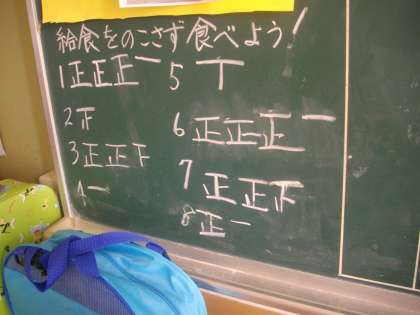 給食をのこさず食べよう!
1正正正一
2正
3正正下
4一
5丅
6正正正一
7正正下
8正一